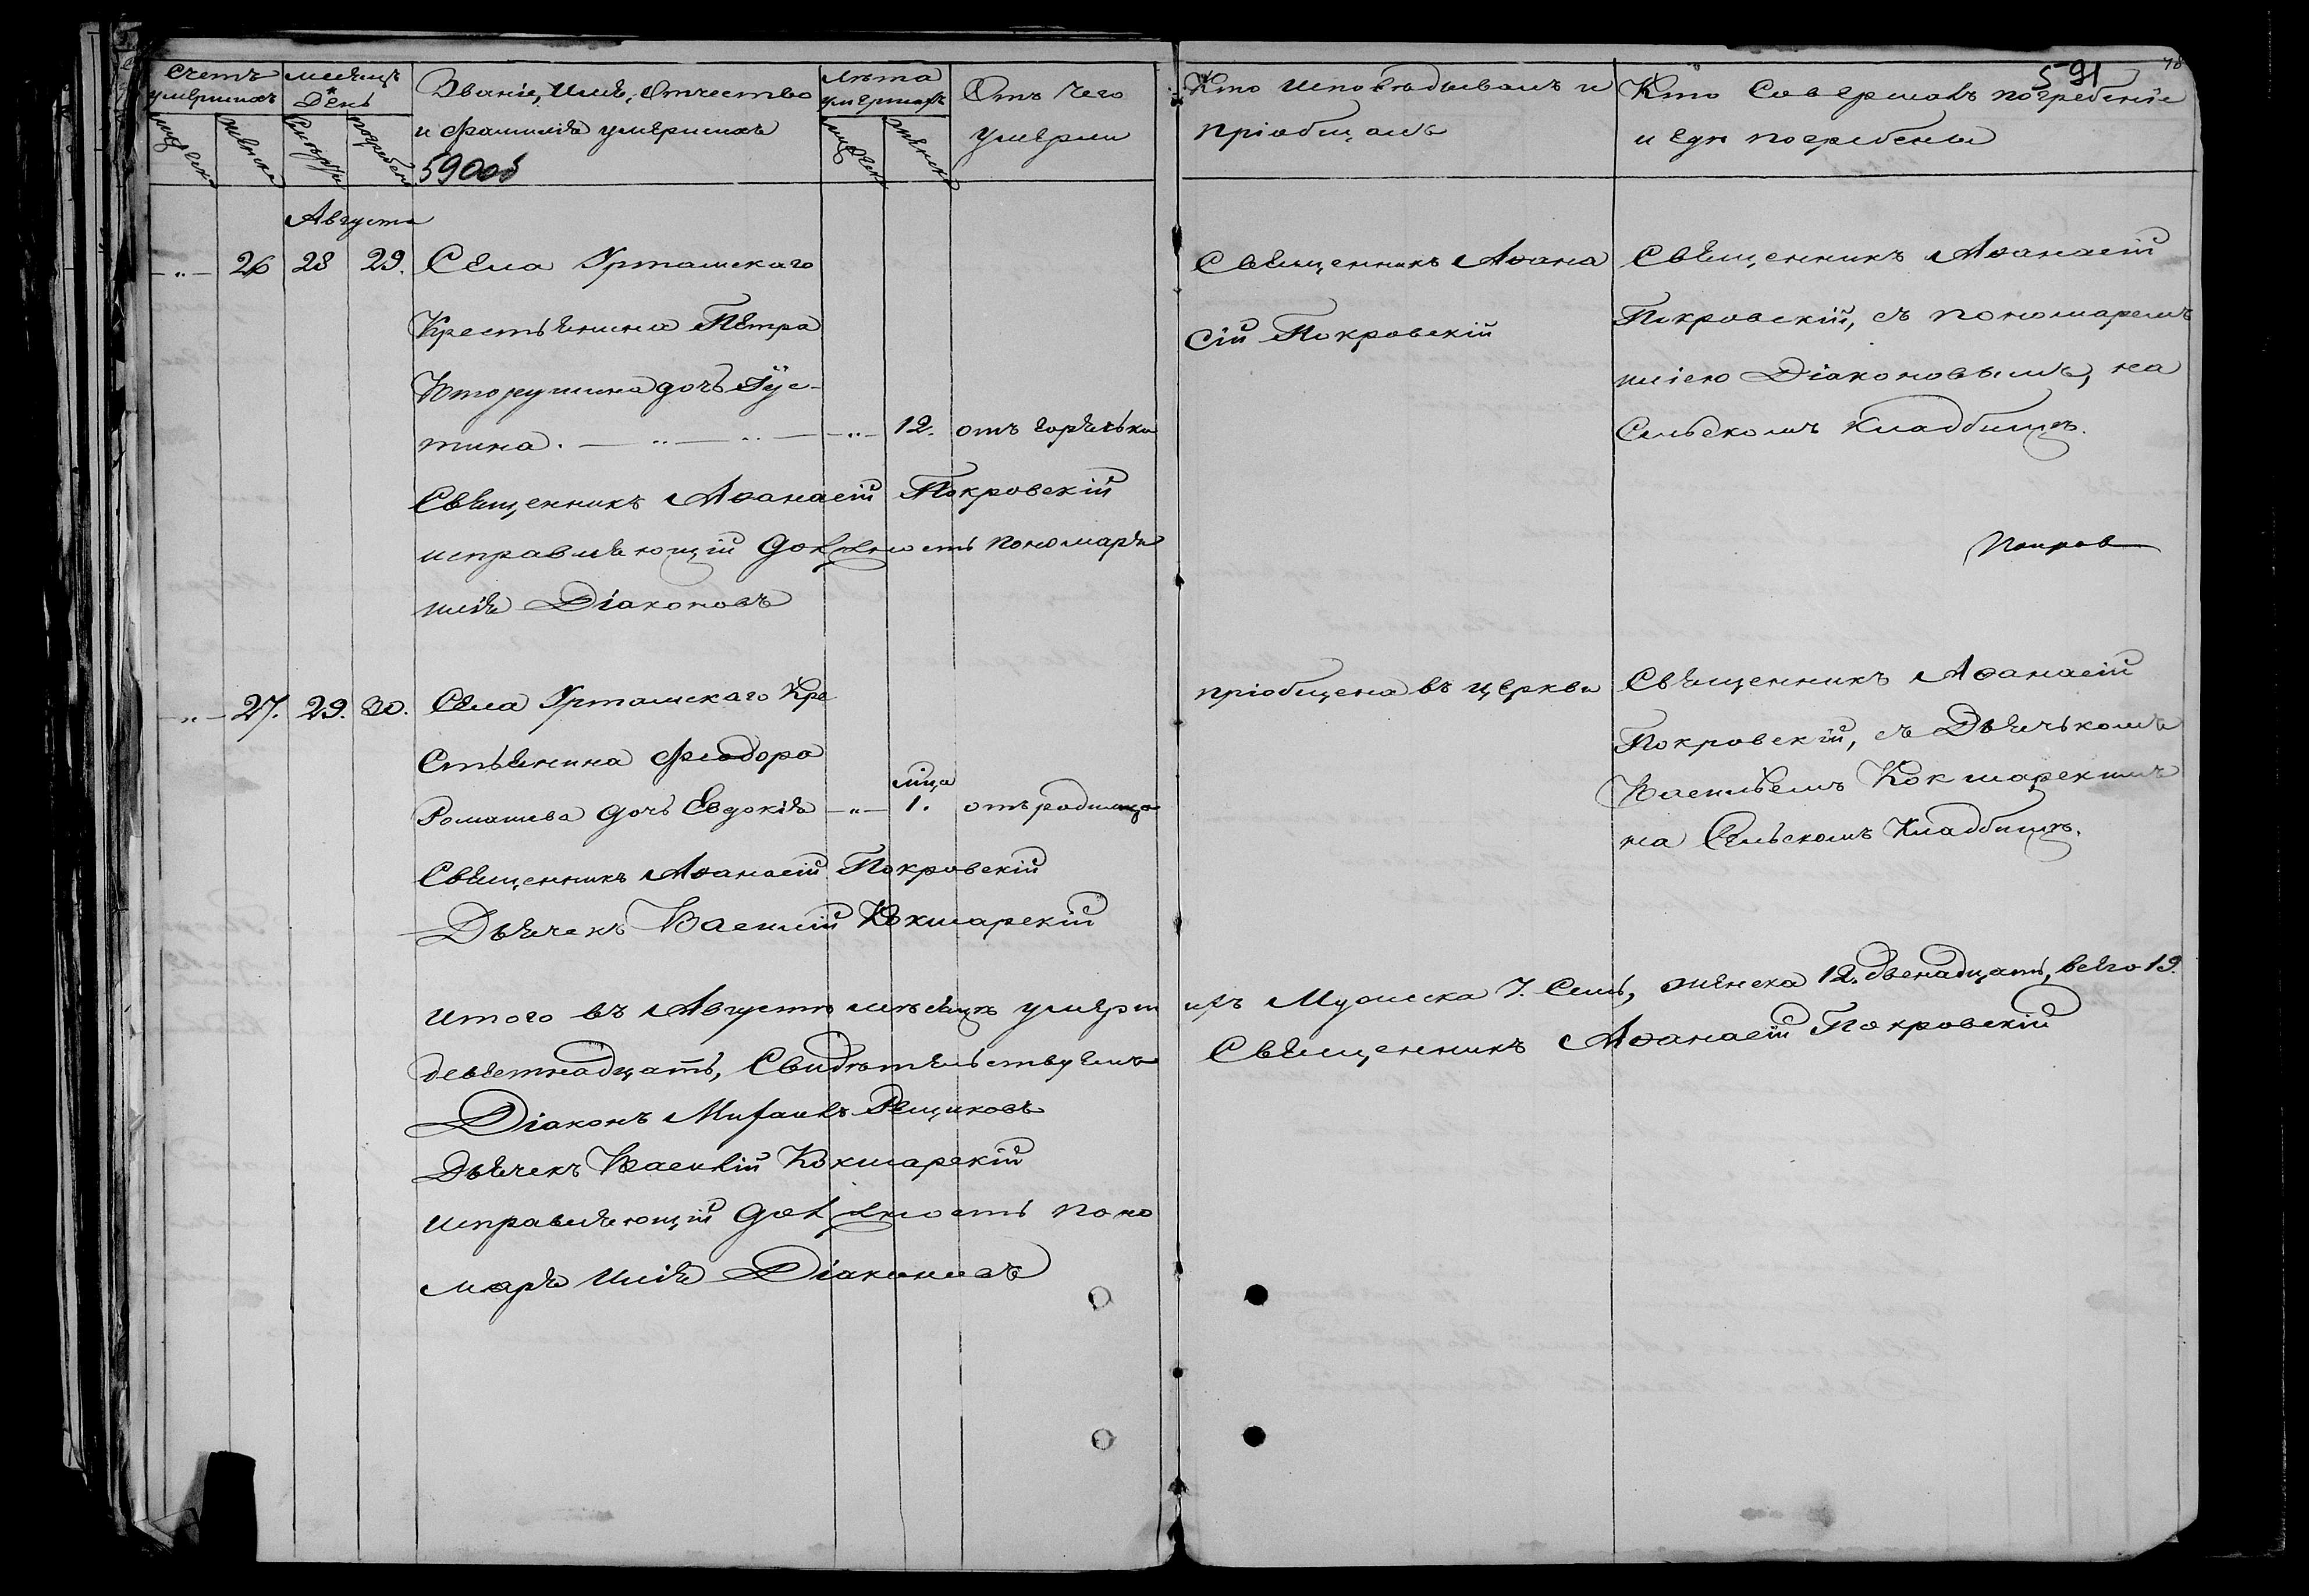 Счетъ умершихъ
мужеска
женска
Месяцъ День
Смерти
погребен
Званіе, Имя, Отчество
и фамилія умершихъ
590об
Лета умершихъ
мужеск
женск
Отъ чего
умерли
Кто исповѣдывалъ и
пріобщалъ
591
Кто Совершалъ погребеніе
и гдѣ погребены
Августа
26 28 29. Села Урташскаго
Крестьянина Петра
дочь Іус-
тина. 12. отъ горячьки
Священникъ Афана
сій Покровскій
Священникъ Аѳанасій
Покровскій, съ пономаремъ
иліею Діаконовымъ, на
Сельскомъ Кладбищѣ.
Священникъ Аѳанасій Покровскій
исправляющій должность пономаря
илія Діаконовъ
Покров
27. 29. 30. Села Урташскаго Кре
стьянина Феодора
Ромашева дочь Евдокія мца 1. отъ родимца
пріобщена въ церкви
Священникъ Аѳанасій
Покровскій, съ Дьячькомъ
Васильемъ Кокшарскимъ
на Сельскомъ Кладбищѣ.
Священникъ Аѳанасій Покровскій
Дьячекъ Василій Кокшарскій
итого въ Августѣ месяцѣ умерш ихъ Мужеска 7. Семь, женска 12. двенадцать, всего 19.
девятнадцать, Свидѣтельствуемъ Священникъ Аѳанасій Покровскій
Діаконъ Михаилъ Рещиковъ
Дьячекъ Василій Кокшарскій
исправляющій должность поно
маря Илія Діаконовъ